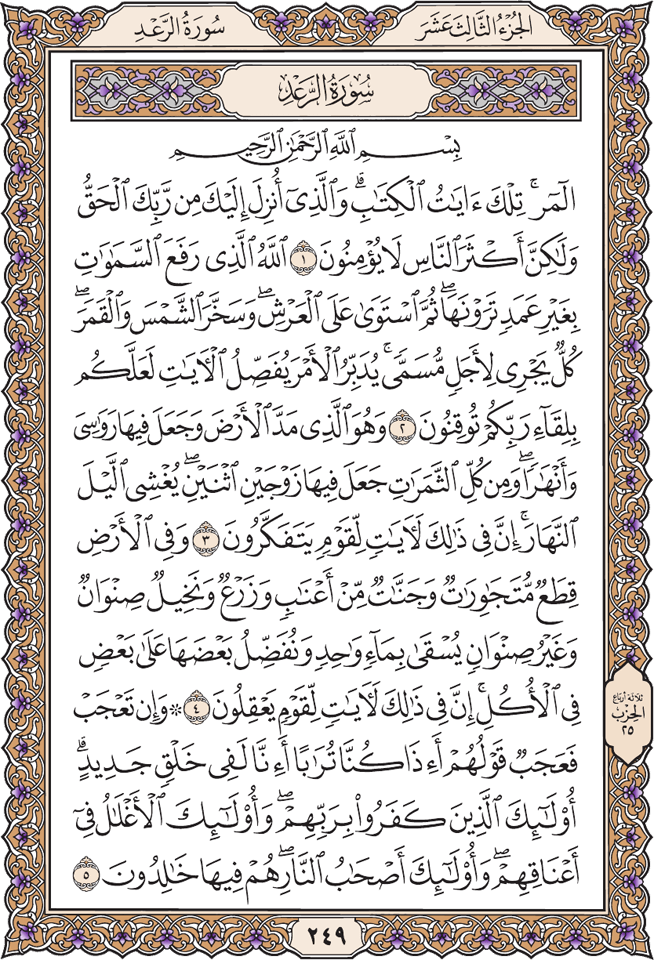 الجُزْءُ الثَّالِثَ عَشَرَ
سُورَةُ الرَّعْدِ
سُورَةُ الرَّعْدِ
بِسْمِ اللَّهِ الرَّحْمَٰنِ الرَّحِيمِ
الٓمٓرۚ تِلْكَ ءَايَٰتُ ٱلْكِتَٰبِۗ وَٱلَّذِىٓ أُنزِلَ إِلَيْكَ مِن رَّبِّكَ ٱلْحَقُّ
وَلَٰكِنَّ أَكْثَرَ ٱلنَّاسِ لَا يُؤْمِنُونَ ١ ٱللَّهُ ٱلَّذِى رَفَعَ ٱلسَّمَٰوَٰتِ
بِغَيْرِ عَمَدٍ تَرَوْنَهَاۖ ثُمَّ ٱسْتَوَىٰ عَلَى ٱلْعَرْشِۖ وَسَخَّرَ ٱلشَّمْسَ وَٱلْقَمَرَۖ
كُلٌّ يَجْرِى لِأَجَلٍ مُّسَمًّىۚ يُدَبِّرُ ٱلْأَمْرَ يُفَصِّلُ ٱلْآيَٰتِ لَعَلَّكُم
بِلِقَآءِ رَبِّكُمْ تُوقِنُونَ ٢ وَهُوَ ٱلَّذِى مَدَّ ٱلْأَرْضَ وَجَعَلَ فِيهَا رَوَٰسِىَ
وَأَنْهَٰرًاۖ وَمِن كُلِّ ٱلثَّمَرَٰتِ جَعَلَ فِيهَا زَوْجَيْنِ ٱثْنَيْنِۖ يُغْشِى ٱلَّيْلَ
ٱلنَّهَارَۚ إِنَّ فِى ذَٰلِكَ لَآيَٰتٍ لِّقَوْمٍ يَتَفَكَّرُونَ ٣ وَفِى ٱلْأَرْضِ
قِطَعٌ مُّتَجَٰوِرَٰتٌ وَجَنَّٰتٌ مِّنْ أَعْنَٰبٍ وَزَرْعٌ وَنَخِيلٌ صِنْوَانٌ
وَغَيْرُ صِنْوَانٍ يُسْقَىٰ بِمَآءٍ وَٰحِدٍ وَنُفَضِّلُ بَعْضَهَا عَلَىٰ بَعْضٍ
فِى ٱلْأُكُلِۚ إِنَّ فِى ذَٰلِكَ لَآيَٰتٍ لِّقَوْمٍ يَعْقِلُونَ ٤ ۞ وَإِن تَعْجَبْ
فَعَجَبٌ قَوْلُهُمْ أَءِذَا كُنَّا تُرَٰبًا أَءِنَّا لَفِى خَلْقٍ جَدِيدٍۗ
أُوْلَٰٓئِكَ ٱلَّذِينَ كَفَرُواْ بِرَبِّهِمْۖ وَأُوْلَٰٓئِكَ ٱلْأَغْلَٰلُ فِىٓ
أَعْنَاقِهِمْۖ وَأُوْلَٰٓئِكَ أَصْحَٰبُ ٱلنَّارِۖ هُمْ فِيهَا خَٰلِدُونَ ٥
ثلاثة أرباع
الحِزْب
٢٥
٢٤٩